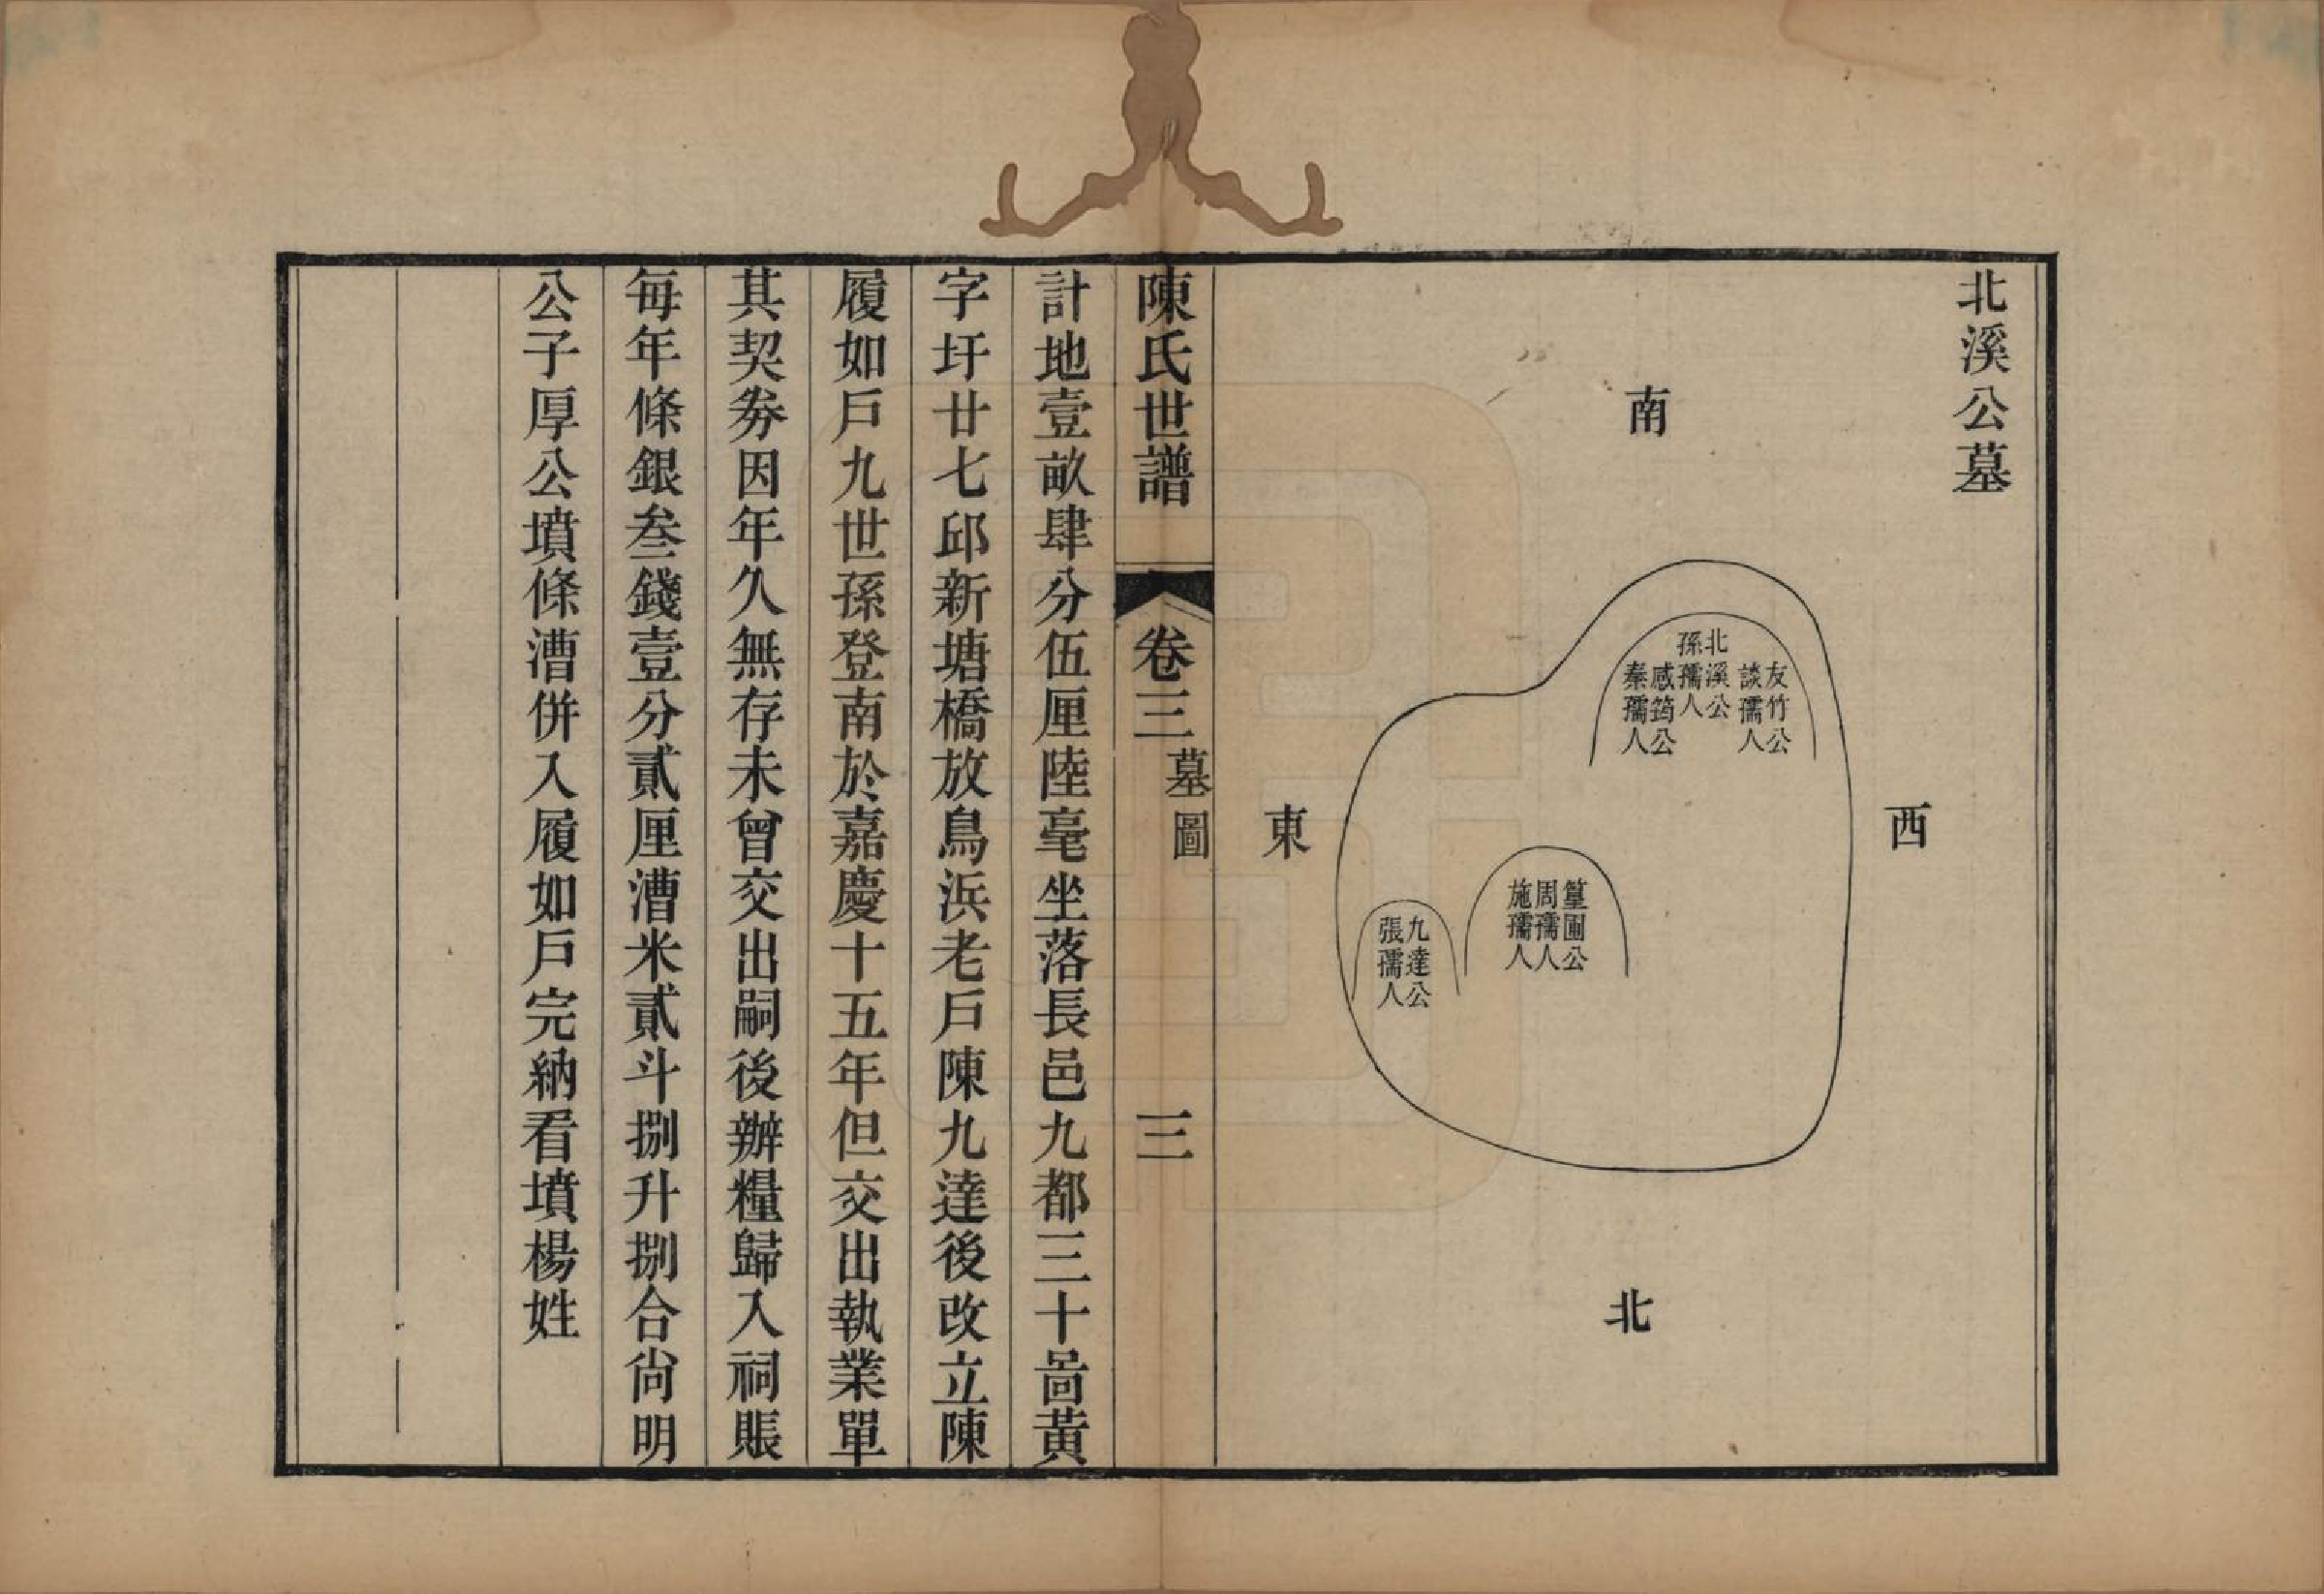 北溪公墓
南
西
東
北
友竹公
談孺人
北溪公
孫孺人
感筠公
秦孺人
篁圃公
周孺人
施孺人
九達公
張孺人
陳氏世譜 卷三 墓圖 三
計地壹畝肆分伍厘陸毫坐落長邑九都三十啚黃
字圩廿七邱新塘橋放鳥浜老戶陳九達後改立陳
履如戶九世孫登南於嘉慶十五年但交出執業單
其契劵因年久無存未曾交出嗣後辦糧歸入祠賬
每年條銀叁錢壹分貳厘漕米貳斗捌升捌合尙明
公子厚公墳條漕併入履如戶完納看墳楊姓